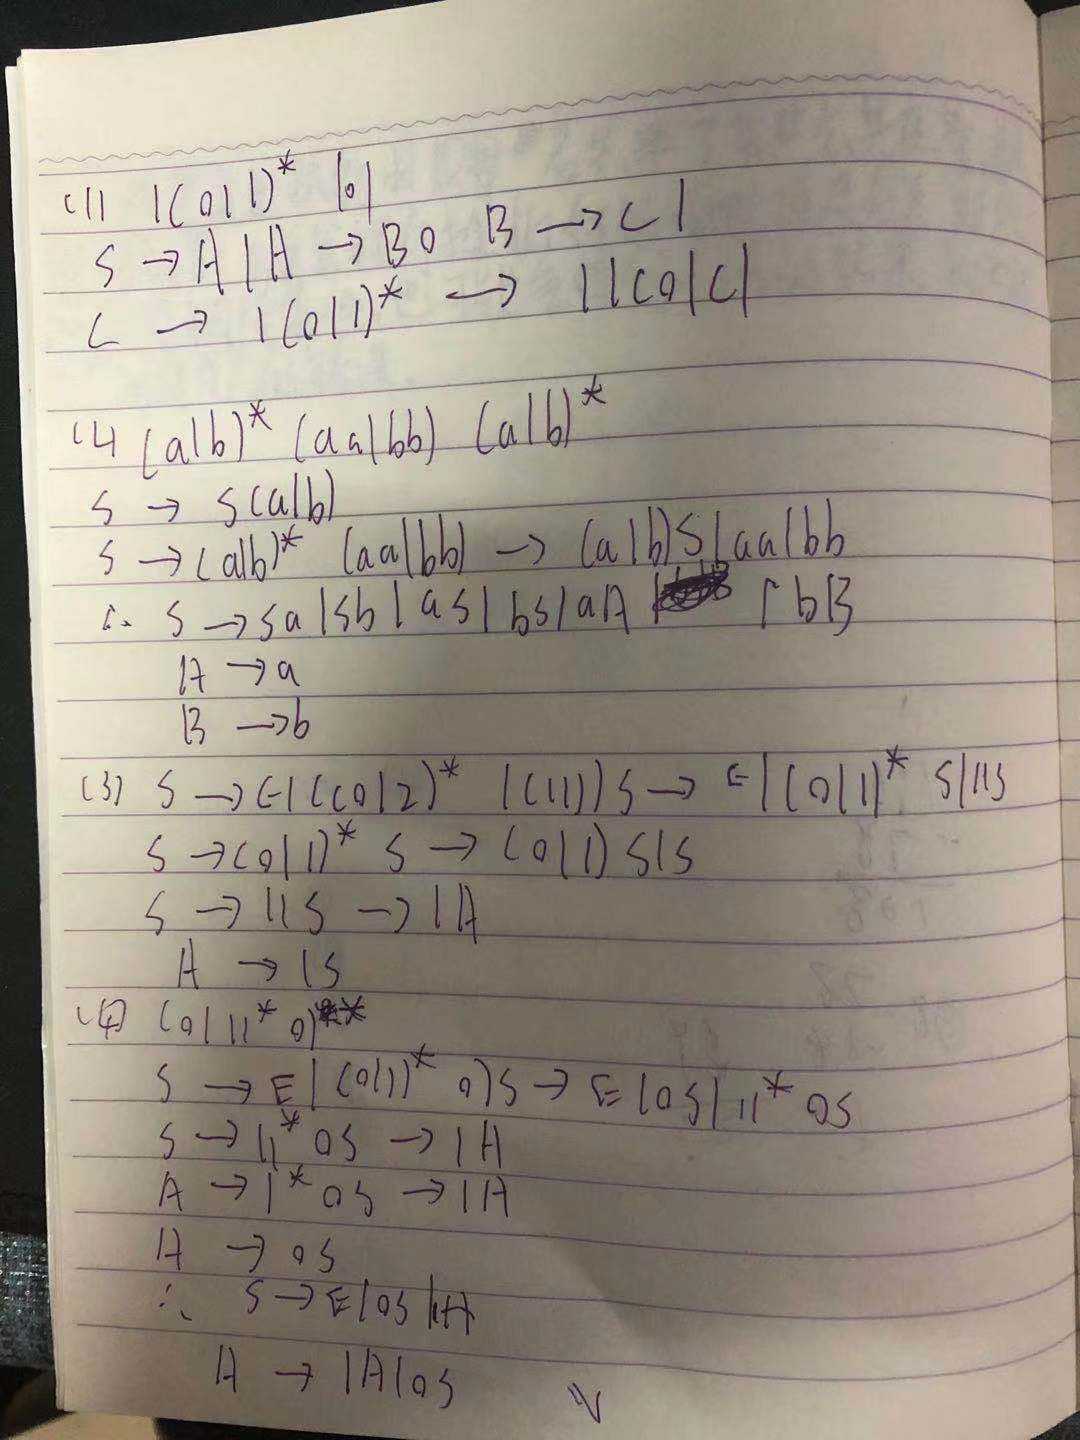 (1) 1(0|1)* 101
S → A1 A → B0 B → C1
C → 1(0|1)* → 1|C0|C1
(a|b)* (aa|bb) (a|b)*
S → S(a|b)
S → (a|b)* (aa|bb) → (a|b)S|aa|bb
∴ S → Sa|Sb|aS|bS|aA |bB
A → a
B → b
(3) S → ε|((0|2)* |(11))S → ε|(0|1)* S|11S
S → (0|1)* S → (0|1)S|S
S → 11S → 1A
A → 1S
(4) (0|11*0)*
S → ε|(0|11)* 0)S → ε|0S|11*0S
S → 11*0S → 1A
A → 1*0S → 1A
A → 0S
∴ S → ε|0S|1A
A → 1A|0S